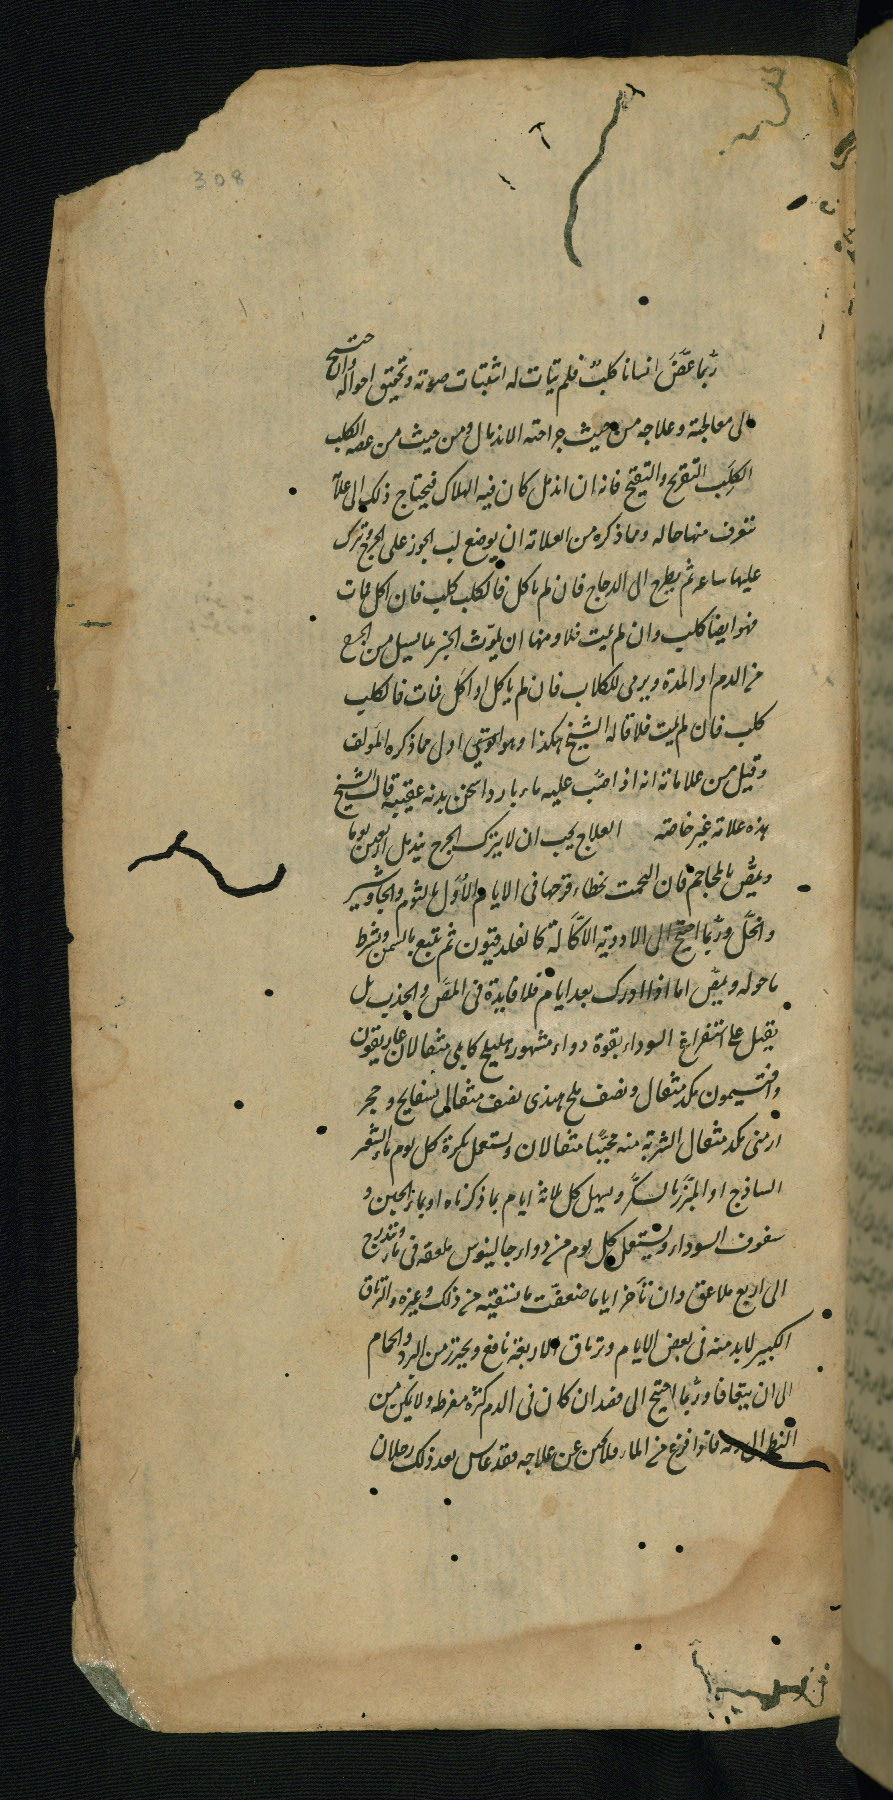 308
ربّما عضّ انسانا كلبٌ فلم يتات له اثبتات صوته وتحقيق احواله واحتيج
الى معالجة وعلاجه من حيث جراحته الاندمال ومن حيث من عضه الكلب
الكَلِب التقريح والتقيّح فانه ان اندمل كان فيه الهلاك فيحتاج ذلك الى علامة
تتعرف منها حاله ومما ذكره من العلامة ان يوضع لب الجوز على الجرح وترك
عليها ساعة ثم يطرح الى الدجاج فان لم ياكل فالكلب كلب فان اكل فمات
فهو ايضا كلب وان لم يمت فلا ومنها ان يلوّث الخبز بما يسيل من الجرح
من الدم او المدّة ويرمى للكلاب فان لم ياكل او اكل فمات فالكلب
كلب فان لم يمت فلا قاله الشيخ هكذا وهو اولى مما ذكره المؤلف
وقيل من علاماته انه اذا صبّ عليه ماء بارد اسخن بدنه عقيبه قال الشيخ
هذه علامة غير خاصّة العلاج يجب ان لا يترك الجرح يندمل اربعين يوما
ويمصّ بالمحاجم فان التحمت بخطاء قرحها فى الايام الاوّل بالثوم والجاوشير
والخلّ وربّما احتيج الى الادوية الاكّالة كالفلدفيون ثم تتبع بالسمن ويشرط
ما حوله ويمصّ اما اذا ادرك بعد ايام فلا فايدة فى المصّ والجذب بل
يقبل على استفراغ السوداء بقوة دواء مشهور هليلج كابلى مثقالان غاريقون
وافتيمون مكد مثقال ونصف ملح هندى نصف مثقال بسفايج وحجر
ارمنى مكد مثقال الشربة منه محبّبا مثقالان ويستعمل بكرة كل يوم ماء الشعير
الساذج او المبزّر بالسكّر ويسهل كل ثلاثة ايام بما ذكرناه او بماء الجبن و
سفوف السوداء ويستعمل كل يوم من دواء جالينوس ملعقة فى ماء وتدرج
الى اربع ملاعق وان تأخر اياما ضعفت ما تسقيه من ذلك وغيره والترياق
الكبير لا بد منه فى بعض الايام وترياق الاربعة نافع ويحترز من البرد والحمام
الى ان يتعافا وربّما احتيج الى فصد ان كان فى الدم كثرة مفرطة ولا يمكن من
النظر اليه فاذا فزع من الماء فلا تمكن عن علاجه فقد عاش بعد ذلك رجلان